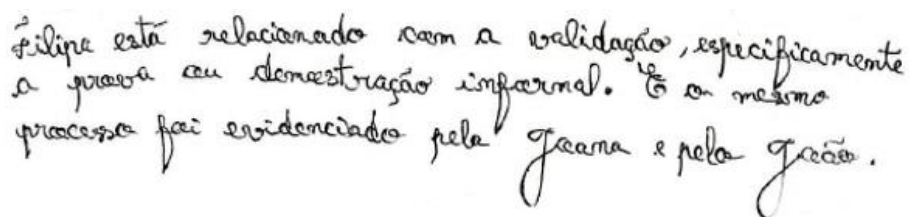 Filipe está relacionado com a validação, especificamente
a prova ou demostração informal. E o mesmo
processo foi evidenciado pela Joana e pelo João.